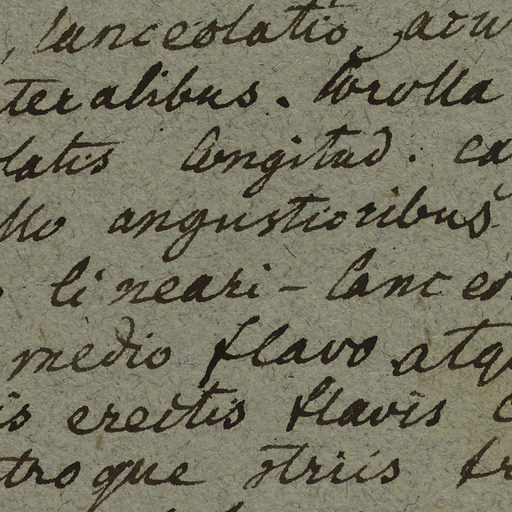 , lanceolatio, acu
teralibus. Corolla
latis longitud. ca
llo angustioribus
lineari - lanceo
medio flavo atqu
is erectis flavis c
troque striis fr